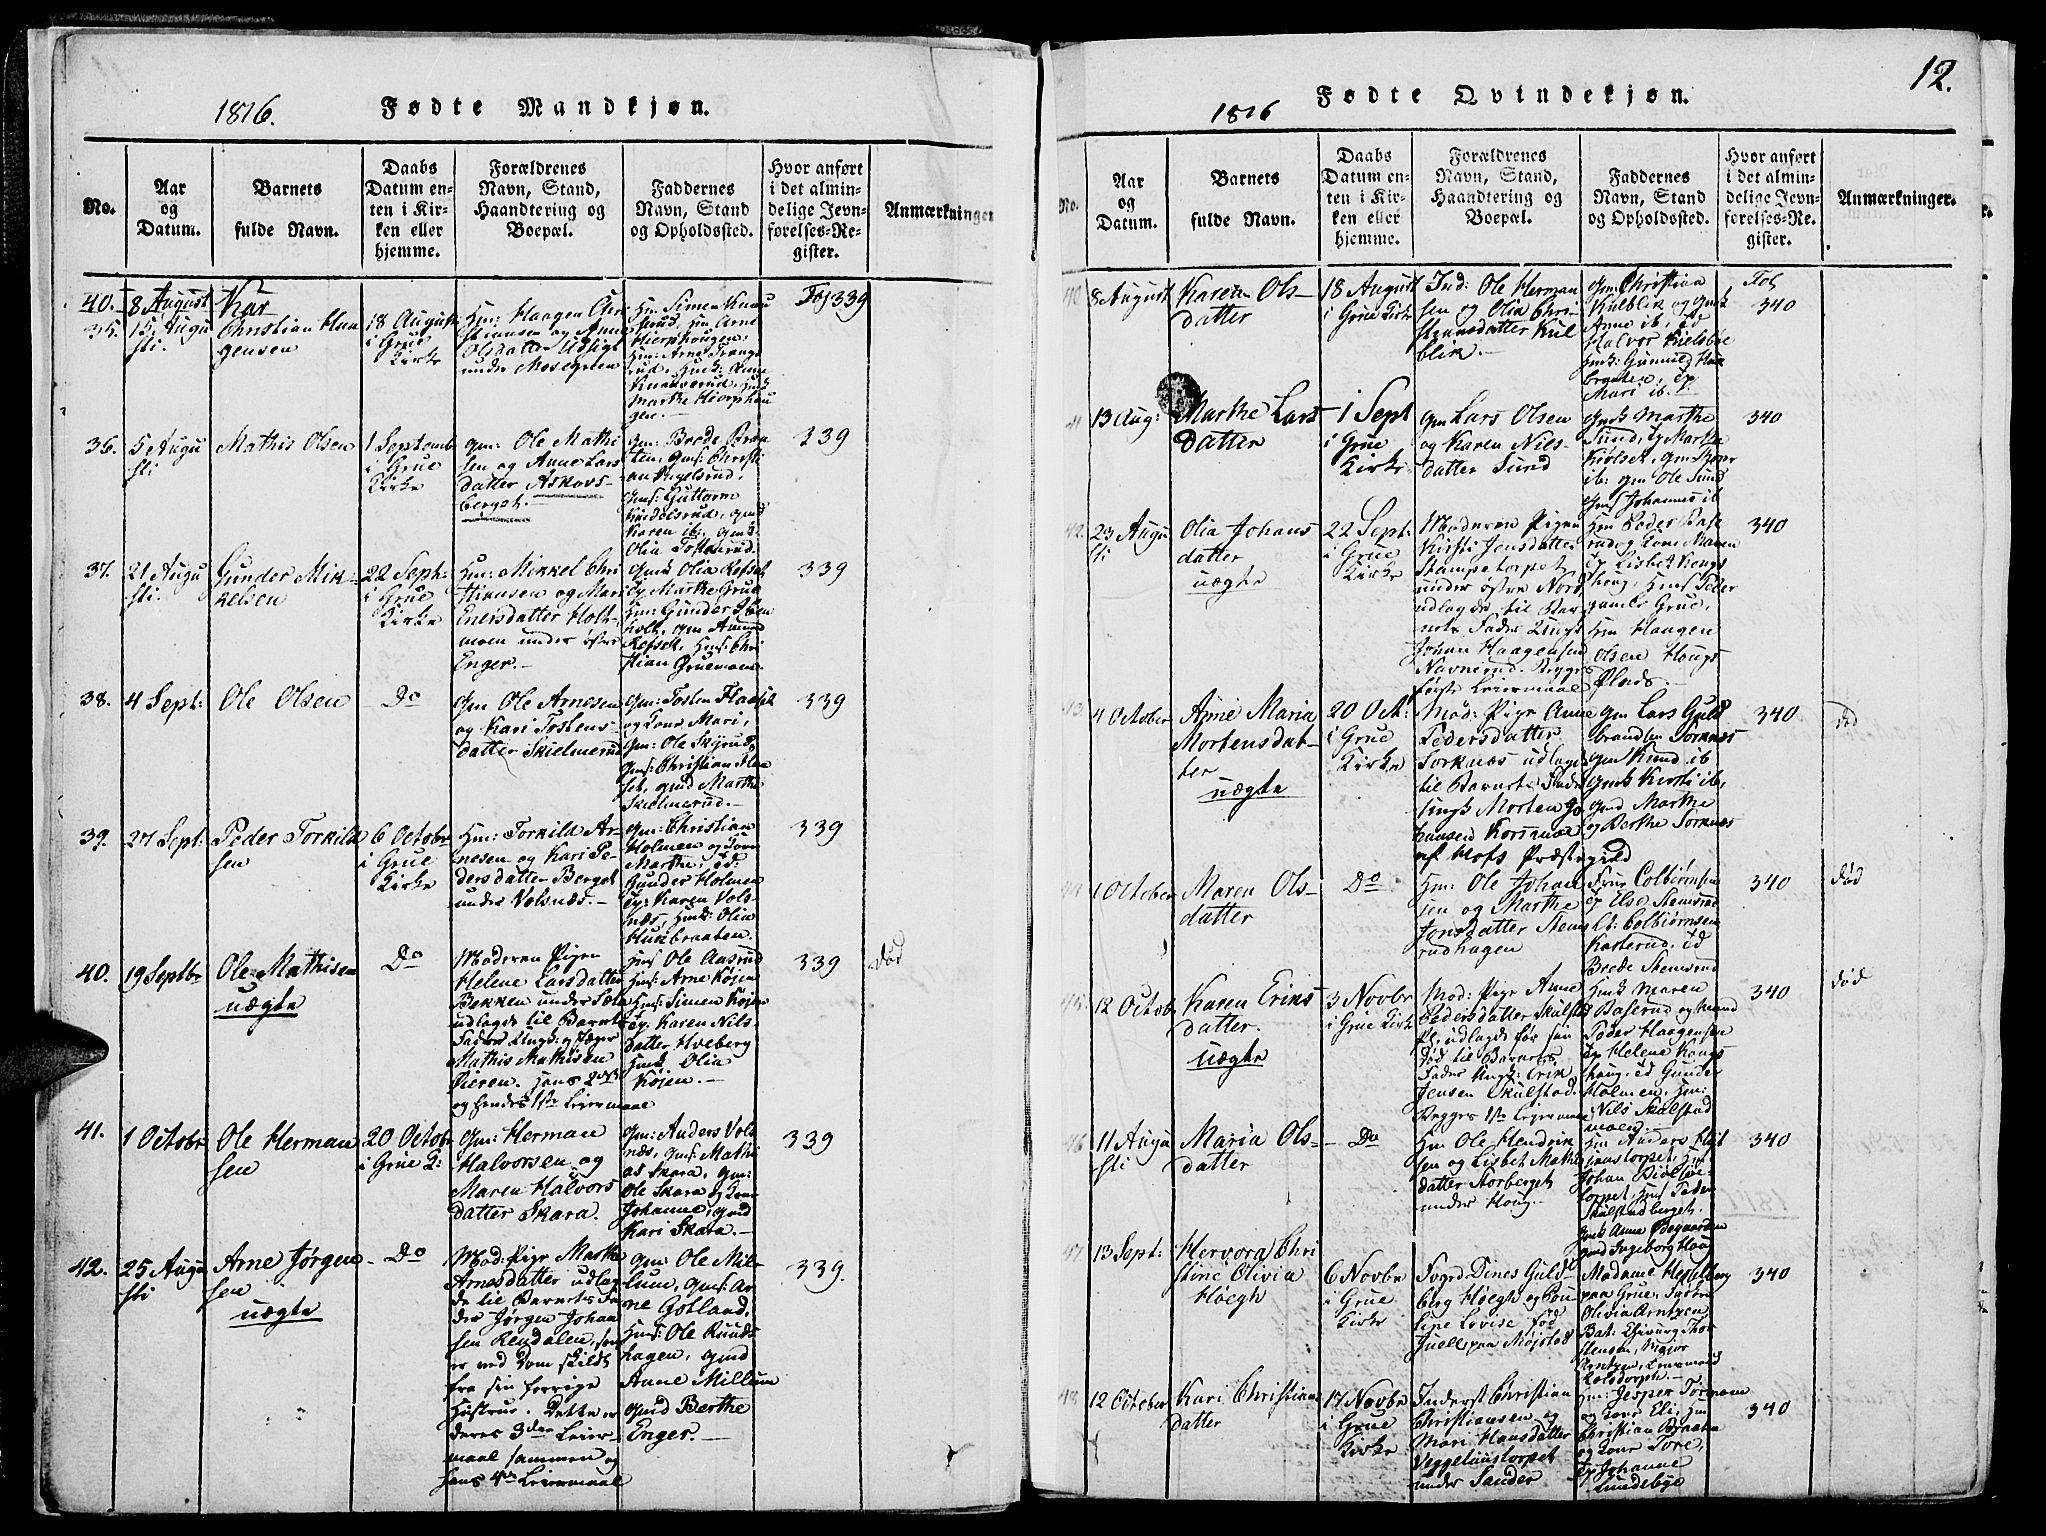 1816.
Fødte Mandkjøn.
No.
Aar
og
Datum.
Barnets
fulde Navn.
Daabs
Datum en-
ten i Kir-
ken eller
hjemme.
Forældrenes
Navn, Stand,
Haandtering og
Boepæl.
Faddernes
Navn, Stand
og Opholdssted.
Hvor anført
i det almin-
delige Jevn-
førelses-Re-
gister.
Anmærkninger
40. 8 August Kar
35. 15 Augu
sti.
Christian Haa
gensen
18 August
i Grue
Kirke
Hm: Haagen Chri
stiansen og Anne
Olsdatter
under Mosegreen
Hm Simen Knau
Hm: Arne
rud, Hmk:
Marthe Hiorphau
gen.
Fol 339
36. 5 Augu
sti
Mathis Olsen
1 Septemb
i Grue
Kirke
gm: Ole Mathi
sen og Anne Lars
datter Askovs-
berget.
gm: Brede Braa
ten, gms: Christi
gms: Guttorm
gmd
Karen ib:, gmd
Olia
339
37. 21 Augu
sti.
Gunder Mik-
kelsen
22 Sept:
i Grue
Kirke
Hm: Mikkel Chri
stiansen og Mari
datter Holt-
moen under østre
Enger.
gmk Olia Refset
Ep Marthe Grue
Hm: Gunder
holt, gm Amund
Refset, Hms: Chri
stian Gruemoen
339
38. 4 Sept:
Ole Olsen
Do
gm Ole Arnesen
og Kari Tostens-
datter Skielmerud
gm: Tosten
og Kone Mari,
gm: Ole Skyrud,
gms: Christian
set, gmd Marthe
Skielmerud.
339
39. 27 Sept:
Peder Torkild
sen
6 Octobr
i Grue
Kirke
Hm: Torkild Ar
nesen og Kari Pe-
dersdatter Berget
under Volsnæs.
gm: Christian
Holmen og Kone
Marthe, Ed:
Gunder Holmen
Ep: Karen Vols-
næs, Hmk: Olia
Huusbraaten.
339
40. 19 Septbr
Ole Mathisen
uægte
Do
Moderen Pigen
Helene Larsdatter
Bekken under
udlagde til Barnets
Fader Ungk: og Jæger
Mathis Mathisen
hans 2det
og hendes 1ste Leiermaal
Hms Ole Aasrud
Hms: Arne Köjen
Hms: Simen Köjen
Ep: Karen Nils-
datter Hveberg
Hmk Olia
Kojen.
339
død
41. 1 Octobr
Ole Herman
sen
20 Octobr
i Grue K:
gm: Herman
Halvorsen og
Maren Halvors
datter Skara.
gm: Anders Vols
næs, gms: Mathi
as Skara, gm:
Ole Skara og Kone
Johanne, gmd
Kari Skara.
339
42. 25 Augu
sti
Arne Jørgen
sen
uægte
Do
Mod: Pige Marthe
Arnesdatter udlag
de til Barnets Fa
der Jørgen Johan
sen Rendalen, som
er ved Dom skildt
fra sin forrige
Hustrue. Dette er
deres 3die Leier-
maal sammen og
hans 4de Leiermaal
gm Ole Mil-
lum, gms: Ar
ne Gotland,
Hms: Ole Ruuds
hagen, gmd
Anne Millum
gmd Berthe
Enger.
339.
12.
1816
Fødte Qvindekjøn.
No.
Aar
og
Datum.
Barnets
fulde Navn.
Daabs
Datum en-
ten i Kir-
ken eller
hjemme.
Forældrenes
Navn, Stand,
Haandtering og
Boepæl.
Faddernes
Navn, Stand
og Opholdssted.
Hvor anført
i det almin-
delige Jevn-
førelses-Re-
gister.
Anmærkninger.
40 8 August
Karen Ols-
datter
18 August
i Grue Kirke
Ind: Ole Herman
sen og Olia Chri-
stensdatter Kul
blik.
gm Christian
Kulblik og gmk
Anne ib, Ed
Halvor
Hmk: Gunnild
braaten, Ep
Mari ib.
Fol
340
41 13 Aug:
Marthe Lars
datter
1 Sept
i Grue
Kirke
gm Lars Olsen
og Karen Nils-
datter Sund
gmk Marthe
Sund, Ep Marthe
gm
ib: gm Ole Sund
gms Johannes ib
340
42. 23 Augu
sti
Olia Johans
datter
uægte
22 Sept:
i Grue
Kirke
Moderen Pigen
Kirsti Jensdatter
Stampetorpet
under østre Nord
udlagde til Bar-
nets Fader Ungk
Johan Haagensen
Navnerud. Begges
første Leiermaal
Hm Peder Base
rud og Kone Maren
Ep Lisbet Kongs
houg, Hms Peder
gamle Grue,
Hm Haagen
Olsen Hougs
Plads.
340
43. 4 October
Anne Maria
Mortensdat-
ter
uægte
20 Oct:
i Grue
Kirke
Mod: Pige Anne
Pedersdatter
Torknæs udlagde
til Barnets Fader
Ungk Morten Jo
hansen Kornmoe
af Hofs Præstegield
gm Lars Guld
brandsen Torknæs
gm Knud ib
gmk Kirsti ib,
gmd Marthe
og Berthe Torknæs
340
død
44 1 October
Maren Ols-
datter
Do
Hm: Ole Johan
sen og Marthe
Jonsdatter Stems
rudhagen
Frue Colbiørnsen
Ep Else Stemsrud
Lt: Colbiørnsen
Kasterud, Ed
Brede Stemsrud
340
død
45 12 Octob
Karen Eriks
datter.
uægte
3 Novbr
i Grue Kirke
Mod: Pige Anne
Pedersdatter Skulstad
Pl, udlagde før sin
Død til Barnets
Fader Ungk: Erik
Jensen Skulstad.
Begges 1ste Leiermaal
Hmk Maren
Baserud og Mand
Peder Haagensen
Ep Helene Kongs
houg, Ed Gunder
Holmen, Hm:
Nils Skulstad
moen.
340
død
46 11 Augu
sti
Maria Ols-
datter
Do
Hm Ole Hendrik
sen og Lisbet Mathis
datter Storberget
under Houg.
Hm Anders
Hms
Johan
torpet, Hms Peder
Skulstadberget,
gmk Anne Ødegaarden
gmd Ingeborg Houg
340
47 13 Sept:
Hervora Chri
stine Olivia
Høegh
6 Novbr
i Grue
Kirke
Foged Dines Guld-
berg Høegh og Pou
line Lovise fød
Juell paa Mojstad
Madame Hesselberg
paa Grue,
Olivia Arntzen
Bat:
stensen,
Arntzen,
Rolsdorph.
340
48 12 October
Kari Christians
datter
17 Novbr
i Grue
Kirke
Inderst Christian
Christiansen og
Mari Hansdatter
Veggelaustorpet
under Sander
Hm: Jesper Tormoen
og Kone Eli, Hm
Christian Braaten
og Kone Tore,
Ep Johanne
Lundebye
340